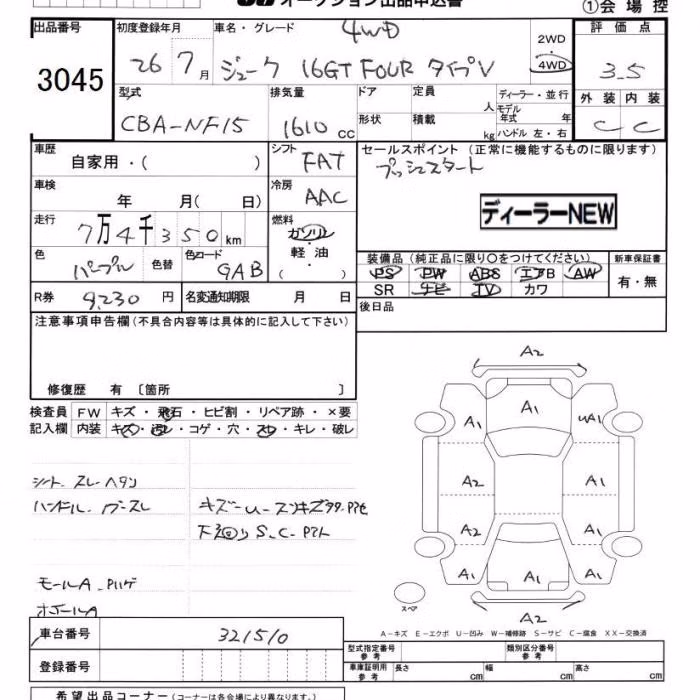 オークション出品申込書 ①会場控
出品番号 初度登録年月 車名・グレード 4WD 2WD・4WD 評価点
3045 26 7月 ジューク 16GT FOUR タイプV 3.5
型式 排気量 ドア 定員 人 ディーラー・並行 外装 内装
CBA-NF15 1610cc 形状 積載 kg モデル年式 年 ハンドル 左・右 C C
車歴 自家用・( ) シフト FAT セールスポイント (正常に機能するものに限ります)
プッシュスタート
車検 年 月( 日) 冷房 AAC
ディーラーNEW
走行 7万4千350km 燃料 ガソリン・軽油・( )
色 パープル 色替 色コード GAB 装備品(純正品に限り○をつけてください) 新車保証書
PS PW ABS エアB AW 有・無
R券 9,230円 名変通知期限 月 日 SR ナビ TV カワ
注意事項申告欄(不具合内容等は具体的に記入して下さい) 後日品
修復歴 有 〔箇所 〕
検査員 FW キズ・飛石・ヒビ割・リペア跡・×要
記入欄 内装 キズ・汚レ・コゲ・穴・スレ・キレ・破レ
A2
A1
A1 uA1
シート、スレヘタリ
A2 A1
キズ-U-スリキズ
下廻り S、C、
A2 A1
A1 A1 A1
モールA
スペア
A2
A-キズ E-エクボ U-凹み W-補修跡 S-サビ C-腐食 XX-交換済
車台番号 321510
型式指定番号 参考 類別区分番号 参考
登録番号 車庫証明用 参考 長さ cm 幅 cm 高さ cm
希望出品コーナー(コーナーは各会場により異なります。)